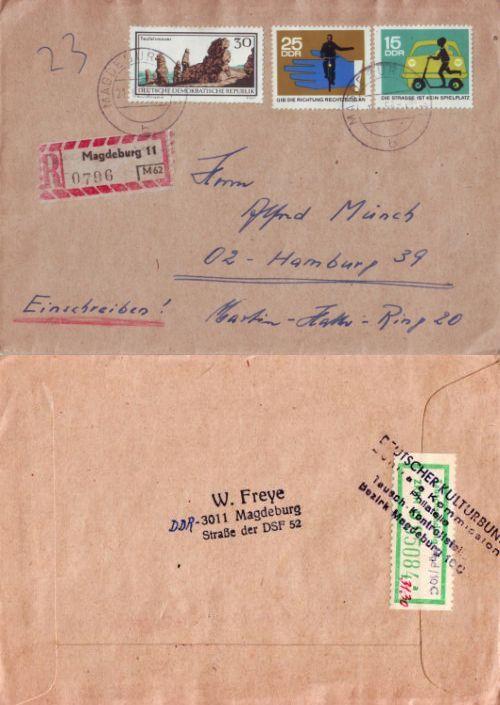 23
Teufelsmauer
30
DEUTSCHE DEMOKRATISCHE REPUBLIK
25
DDR
GIB DIE RICHTUNG RECHTZEITIG AN
15
DDR
DIE STRASSE IST KEIN SPIELPLATZ
MAGDEBURG
R
Magdeburg 11
0796
M62
Herrn
Alfred Münch
02 - Hamburg 39
Einschreiben!
Martin - Haller - Ring 20
W. Freye
DDR-3011 Magdeburg
Straße der DSF 52
DEUTSCHER KULTURBUND
Kommission
Philatelie
Tausch-Kontrollstelle
Bezirk Magdeburg 10C
5084
a